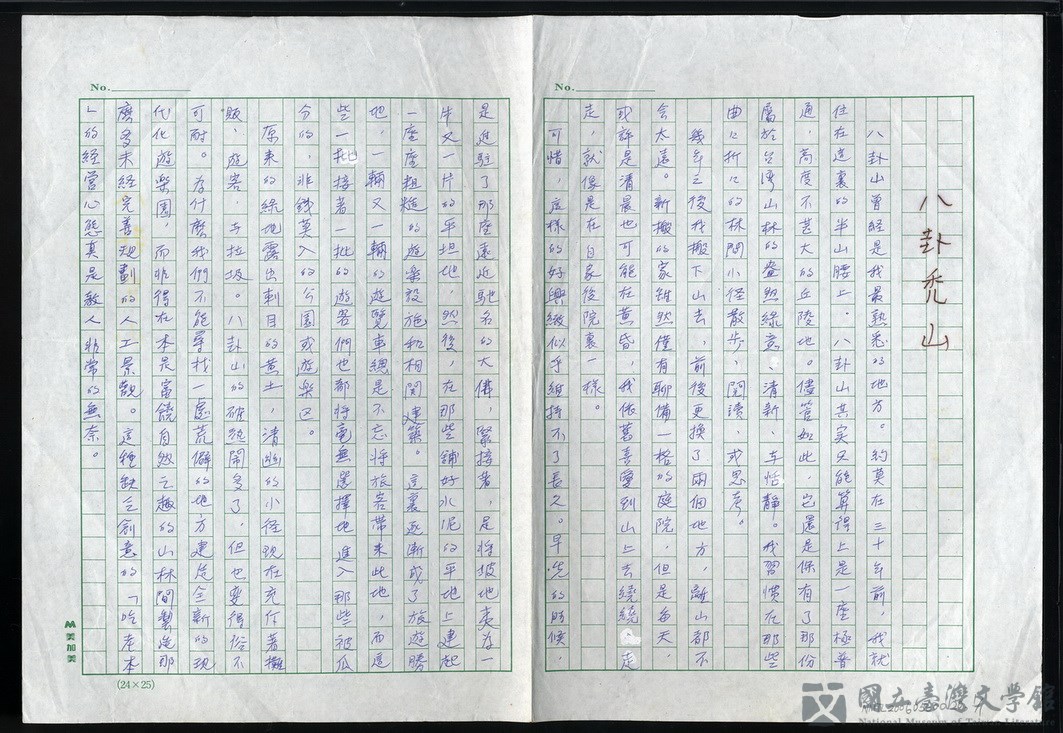 八卦禿山
八卦山曾經是我最熟悉的地方。約莫在三十年前，我就
住在這裏的半山腰上。八卦山其實只能算得上是一座極普
通，高度不甚大的丘陵地。儘管如此，它還是保有了那份
屬於台灣山林的盎然綠意、清新、與恬靜。我習慣在那些
曲曲折折的林間小徑散步、閱讀、或思考。
幾年之後我搬下山去，前後更換了兩個地方，離山都不
會太遠。新搬的家雖然僅有聊備一格的庭院，但是每天，
或許是清晨也可能在黃昏，我依舊喜愛到山上去繞繞走
走，就像是在自家後院裏一樣。
可惜，這樣的好興緻似乎維持不了長久。早先的時候，
是進駐了那座遠近馳名的大佛，緊接著，是將坡地夷為一
片又一片的平坦地，然後，在那些舖好水泥的平地上建起
一座座粗糙的遊樂設施和相關建築。這裏逐漸成了旅遊勝
地，一輛又一輛的遊覽車總是不忘將旅客帶來此地，而這
些一批接著一批的遊客們也都將毫無選擇地進入那些被瓜
分的，非錢莫入的公園或遊樂區。
原來的綠地露出刺目的黃土，清幽的小徑現在充斥著攤
販、遊客、與垃圾。八卦山的確熱鬧多了，但也變得俗不
可耐。為什麼我們不能尋找一處荒僻的地方建造全新的現
代化遊樂園，而非得在本是富饒自然之趣的山林間製造那
麼多未經完善規劃的人工景觀。這種缺乏創意的「吃老本
」的經營心態真是教人非常的無奈。
No.
No.
(24×25)
美加美
國立臺灣文學館
National Museum of Taiwan Literature